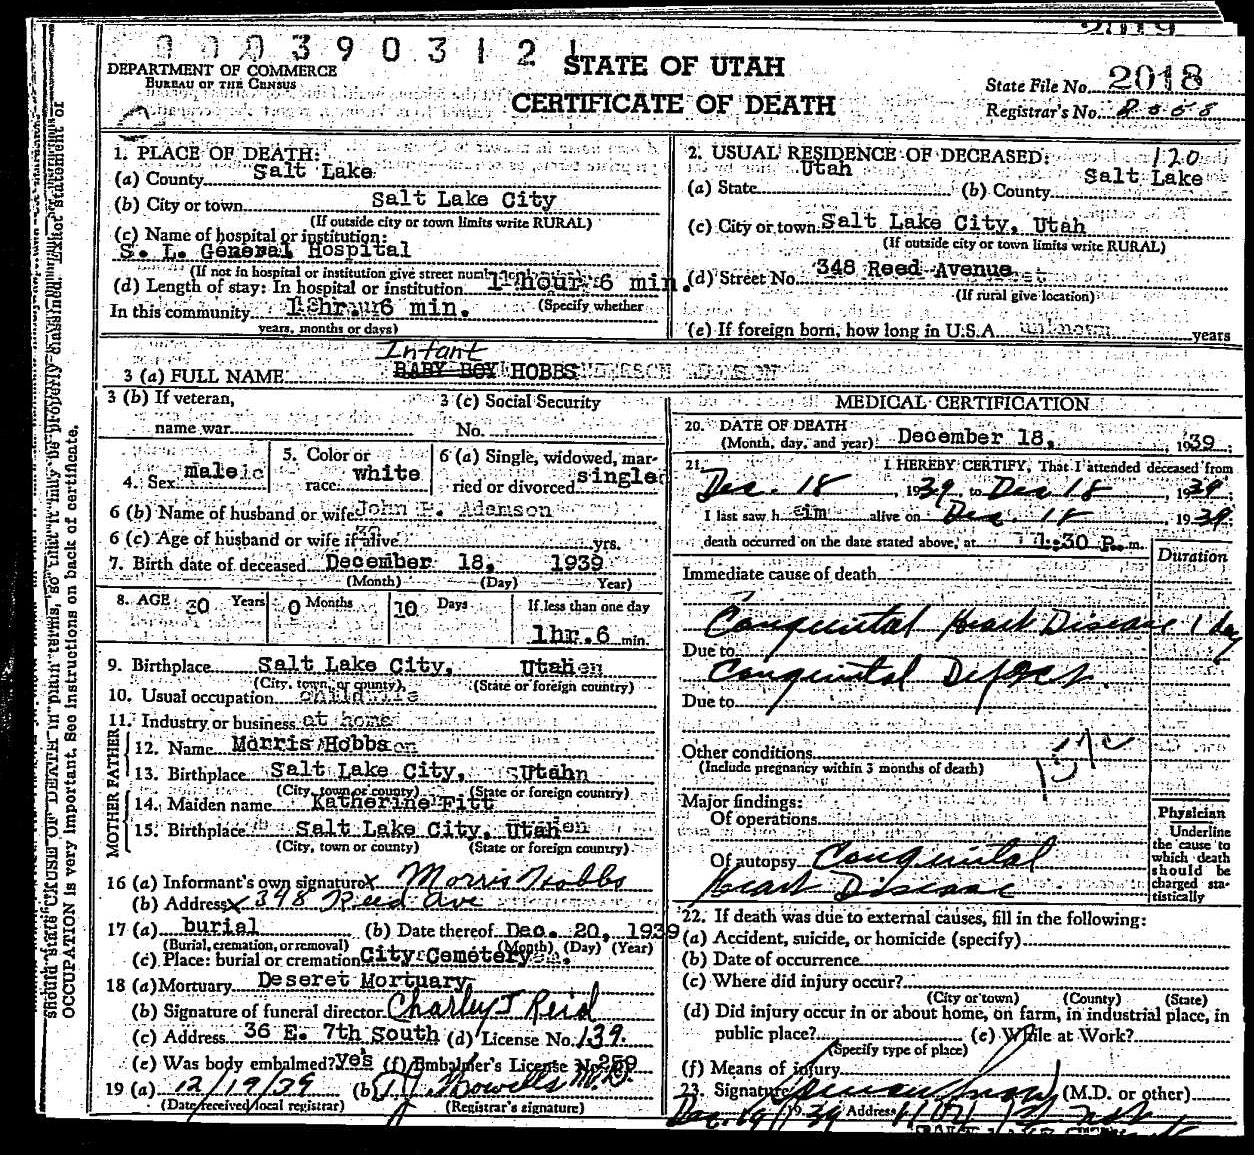 0 0 0 3 9 0 3 1 2 1
DEPARTMENT OF COMMERCE
BUREAU OF THE CENSUS
STATE OF UTAH
CERTIFICATE OF DEATH
State File No. 2018
Registrar's No. 2058
1. PLACE OF DEATH:
(a) County Salt Lake
(b) City or town Salt Lake City
(If outside city or town limits write RURAL)
(c) Name of hospital or institution:
S. L. General Hospital
(If not in hospital or institution give street number
(d) Length of stay: In hospital or institution 1 hour 6 min.
(Specify whether
In this community 1 hr. 6 min.
years, months or days)
2. USUAL RESIDENCE OF DECEASED: 120
(a) State Utah (b) County Salt Lake
(c) City or town Salt Lake City, Utah
(If outside city or town limits write RURAL)
(d) Street No. 348 Reed Avenue
(If rural give location)
(e) If foreign born, how long in U.S.A. years
Infant
3 (a) FULL NAME BABY BOY HOBBS
3 (b) If veteran, name war
3 (c) Social Security No.
4. Sex male
5. Color or race white
6 (a) Single, widowed, married or divorced single
6 (b) Name of husband or wife John Adamson
6 (c) Age of husband or wife if alive yrs.
7. Birth date of deceased December 18, 1939
(Month) (Day) Year)
8. AGE 30 Years 0 Months 10 Days If less than one day
1hr. 6 min.
9. Birthplace Salt Lake City, Utah
(City, town, or county) (State or foreign country)
10. Usual occupation
11. Industry or business at home
FATHER
12. Name Morris Hobbs
13. Birthplace Salt Lake City, Utah
(City, town or county) (State or foreign country)
MOTHER
14. Maiden name Katherine Fitt
15. Birthplace Salt Lake City, Utah
(City, town or county) (State or foreign country)
16 (a) Informant's own signature x Morris Hobbs
(b) Address x 348 Reed Ave
17 (a) burial (b) Date thereof Dec. 20, 1939
(Burial, cremation, or removal) (Month) (Day) (Year)
(c) Place: burial or cremation City Cemetery
18 (a) Mortuary Deseret Mortuary
(b) Signature of funeral director Charley J Reid
(c) Address 36 E. 7th South (d) License No. 139.
(e) Was body embalmed? yes (f) Embalmer's License No. 259
19 (a) 12/19/39 (b) Howells M.D.
(Date received local registrar) (Registrar's signature)
MEDICAL CERTIFICATION
20. DATE OF DEATH
(Month, day, and year) December 18, 1939
21. I HEREBY CERTIFY, That I attended deceased from
Dec. 18, 1939 to Dec 18, 1939
I last saw him alive on Dec. 18 1939
death occurred on the date stated above, at 1:30 P. m.
Duration
Immediate cause of death
Congenital Heart Disease 1 day
Due to
Congenital Defect
Due to
Other conditions
(Include pregnancy within 3 months of death)
157c
Major findings:
Of operations
Of autopsy Congenital
Heart Disease
Physician
Underline the cause to which death should be charged statistically
22. If death was due to external causes, fill in the following:
(a) Accident, suicide, or homicide (specify)
(b) Date of occurrence
(c) Where did injury occur?
(City or town) (County) (State)
(d) Did injury occur in or about home, on farm, in industrial place, in
public place? (e) While at Work?
(Specify type of place)
(f) Means of injury
23. Signature (M.D. or other)
Dec. 19, 1939 Address
should state CAUSE OF DEATH in plain terms, so that it may be properly classified. Exact statement of
OCCUPATION is very important. See instructions on back of certificate.